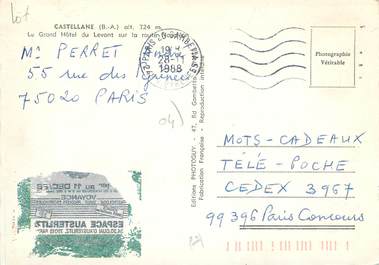 lot
CASTELLANE (B.-A.) alt. 724 m.
Le Grand Hôtel du Levant sur la route
Mr PERRET
55 rue des
75020 PARIS
PARIS
28-11
1988
Photographie
Véritable
04)
Editions PHOTOGUY - 47, Bd Gambetta
Fabrication Française - Reproduction interdite
MOTS-CADEAUX
TÉLÉ-POCHE
CEDEX 3967
99396 Paris Concours
11 DEC
VOYANCE
ESPACE AUSTERLITZ